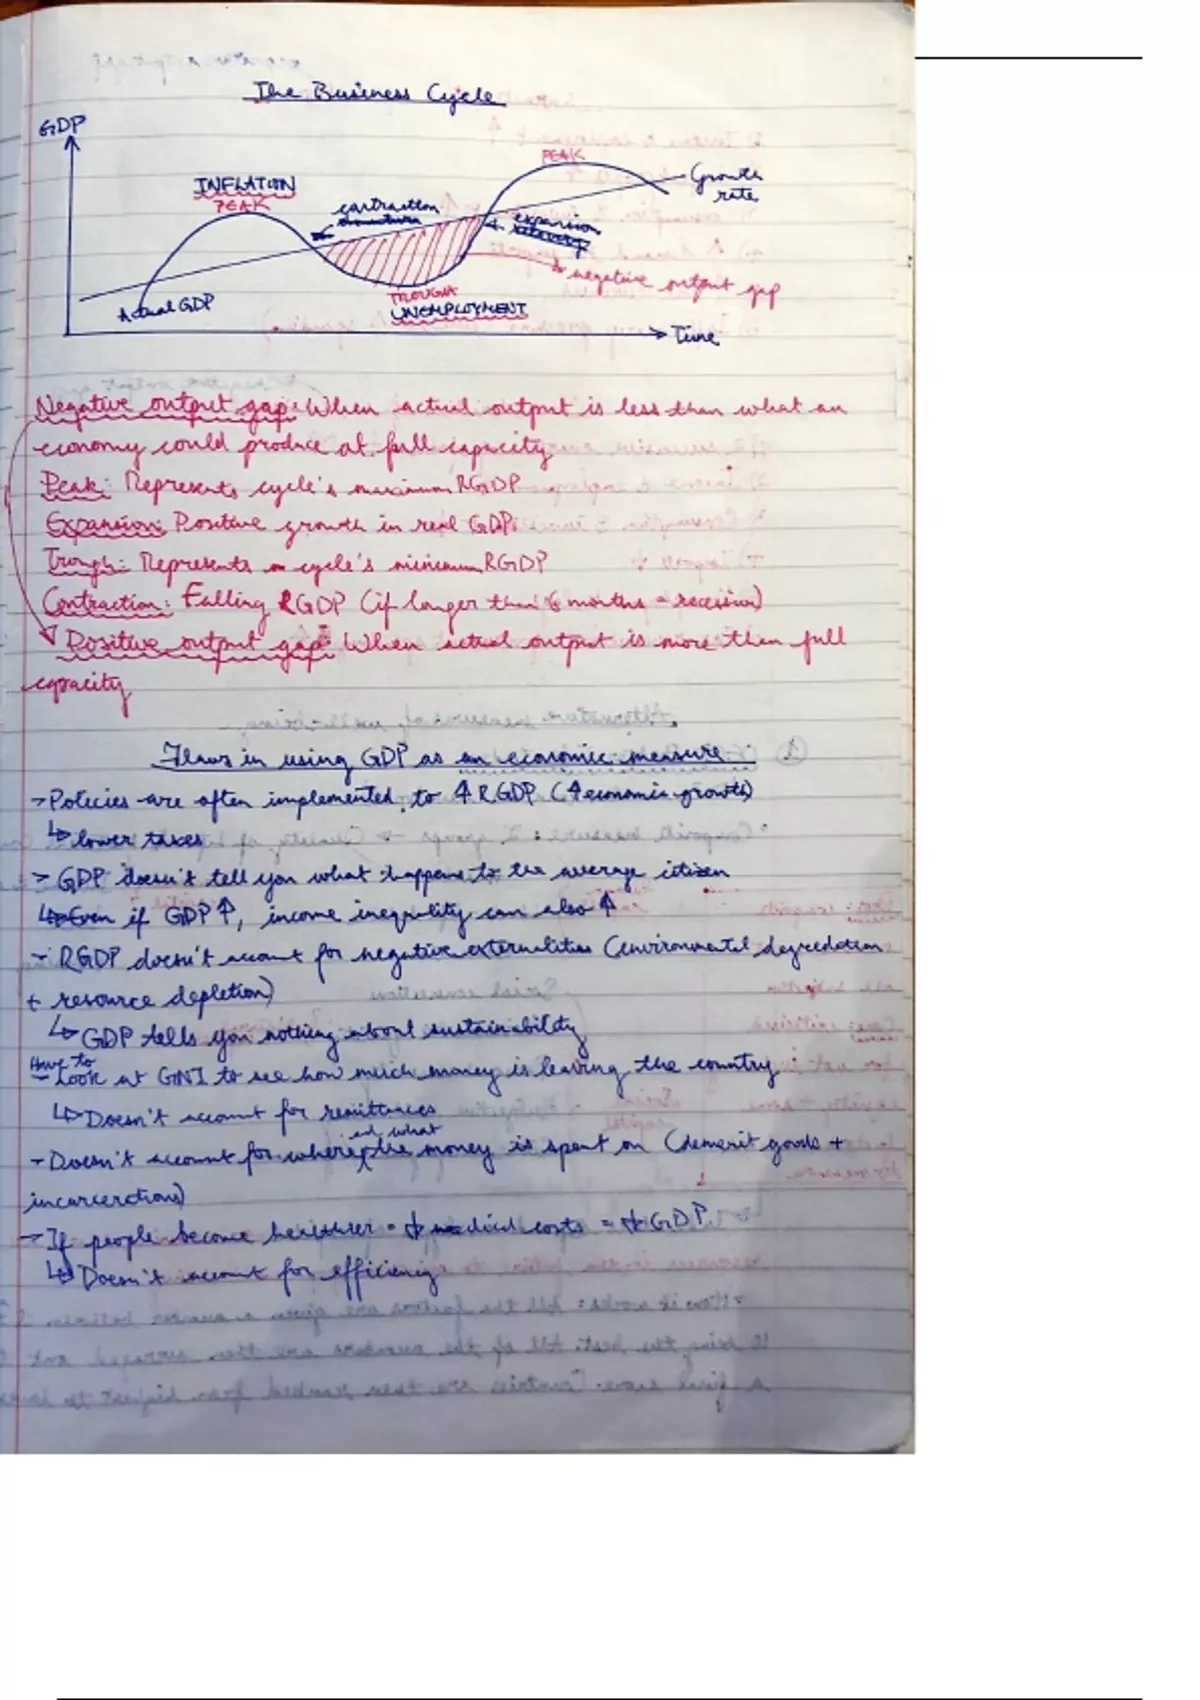 The Business Cycle
GDP
PEAK
Growth
rate
INFLATION
PEAK
contraction
expansion
recovery
negative output gap
Actual GDP
TROUGH
UNEMPLOYMENT
Time
Negative output gap: When actual output is less than what an
economy could produce at full capacity
Peak: Represents cycle's maximum RGDP
Expansion: Positive growth in real GDP
Trough: Represents cycle's minimum RGDP
Contraction: Falling RGDP (if longer than 6 months = recession)
Positive output gap: When actual output is more than full
capacity
Flaws in using GDP as an economic measure:
→ Policies are often implemented to ↑ RGDP (↑ economic growth)
↳ lower taxes
→ GDP doesn't tell you what happens to the average citizen
↳ Even if GDP ↑, income inequality can also ↑
→ RGDP doesn't account for negative externalities (environmental degredation
+ resource depletion)
↳ GDP tells you nothing about sustainability
Have to
→ Look at GNI to see how much money is leaving the country
↳ Doesn't account for remittances
and what
→ Doesn't account for where the money is spent on (demerit goods +
incarcerations)
→ If people become healthier = ↓ medical costs = ↓ GDP
↳ Doesn't account for efficiency